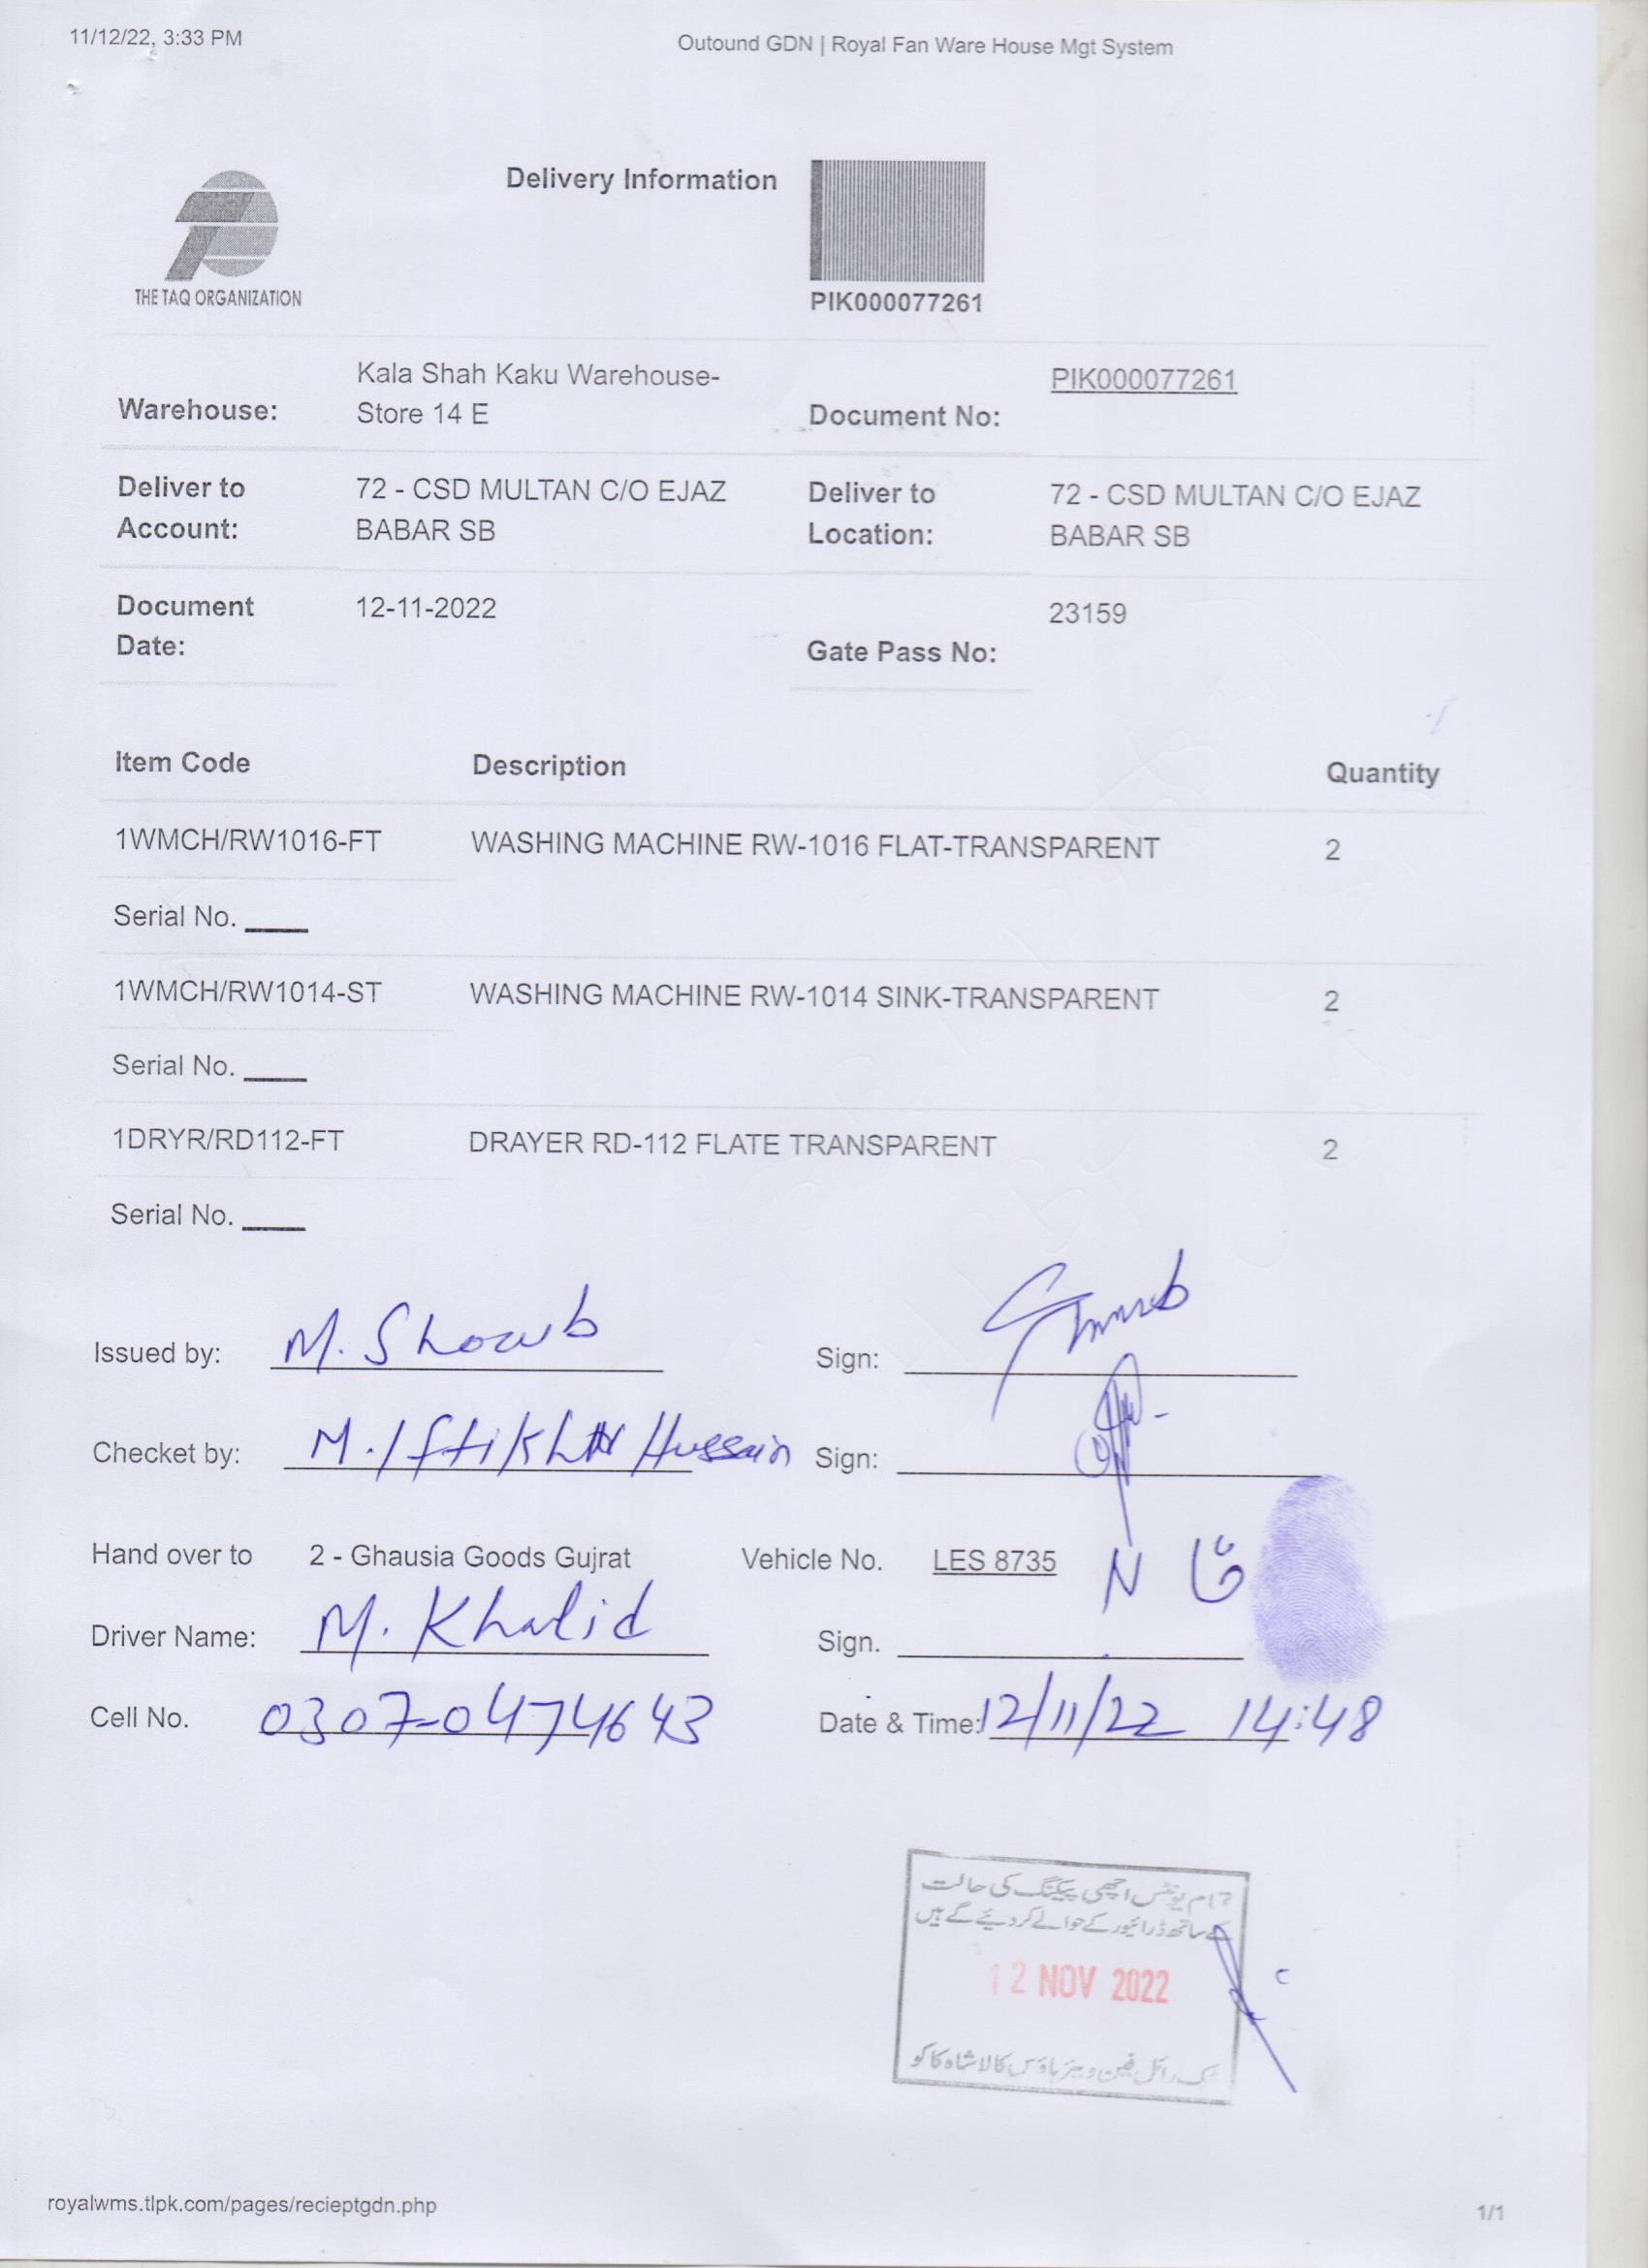 11/12/22, 3:33 PM
Outound GDN | Royal Fan Ware House Mgt System
THE TAQ ORGANIZATION
Delivery Information
PIK000077261
Warehouse: Kala Shah Kaku Warehouse-
Store 14 E
Document No: PIK000077261
Deliver to
Account: 72 - CSD MULTAN C/O EJAZ
BABAR SB
Deliver to
Location: 72 - CSD MULTAN C/O EJAZ
BABAR SB
Document
Date: 12-11-2022
Gate Pass No: 23159
Item Code Description Quantity
1WMCH/RW1016-FT WASHING MACHINE RW-1016 FLAT-TRANSPARENT 2
Serial No. ____
1WMCH/RW1014-ST WASHING MACHINE RW-1014 SINK-TRANSPARENT 2
Serial No. ____
1DRYR/RD112-FT DRAYER RD-112 FLATE TRANSPARENT 2
Serial No. ____
Issued by: M. Showb Sign:
Checket by: M. Iftikhar Hussain Sign:
Hand over to 2 - Ghausia Goods Gujrat Vehicle No. LES 8735
Driver Name: M. Khalid Sign.
Cell No. 0307-0474643 Date & Time: 12/11/22 14:48
تمام یونٹس اچھی پیکنگ کی حالت
کے ساتھ ڈرائیور کے حوالے کر دیئے گے ہیں
12 NOV 2022
رائل فین ویئر ہاؤس کالا شاہ کاکو
royalwms.tlpk.com/pages/recieptgdn.php
1/1